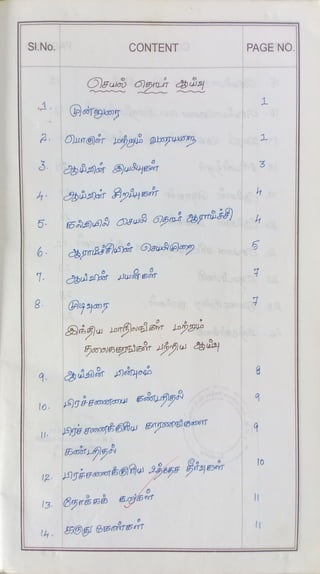 Sl.No. CONTENT PAGE NO.
செயல் தொடர் ஆய்வு
1. முன்னுரை 1
2. பொருள் மற்றும் வரையறை 1
3. ஆய்வின் இயல்புகள் 3
4. ஆய்வின் சிறப்புகள் 4
5. கல்வியில் செயலி தொடர் ஆராய்ச்சி 4
6. ஆராய்ச்சியின் செயலிமுறை 5
7. ஆய்வின் பயன்கள் 7
8. முடிவுரை 7
இந்திய மாநிலங்கள் மற்றும்
தலைநகரங்கள் பற்றிய ஆய்வு
9. ஆய்வின் பின்புலம் 8
10. பிரச்சனையை கண்டறிதல் 9
11. பிரச்சனைக்குரிய காரணங்களை 9
கண்டறிதல்
12. பிரச்சனைக்குரிய உத்தேச தீர்வுகள் 10
13. நோக்கக் கூற்கள் 11
14. கருதுகோள்கள் 11